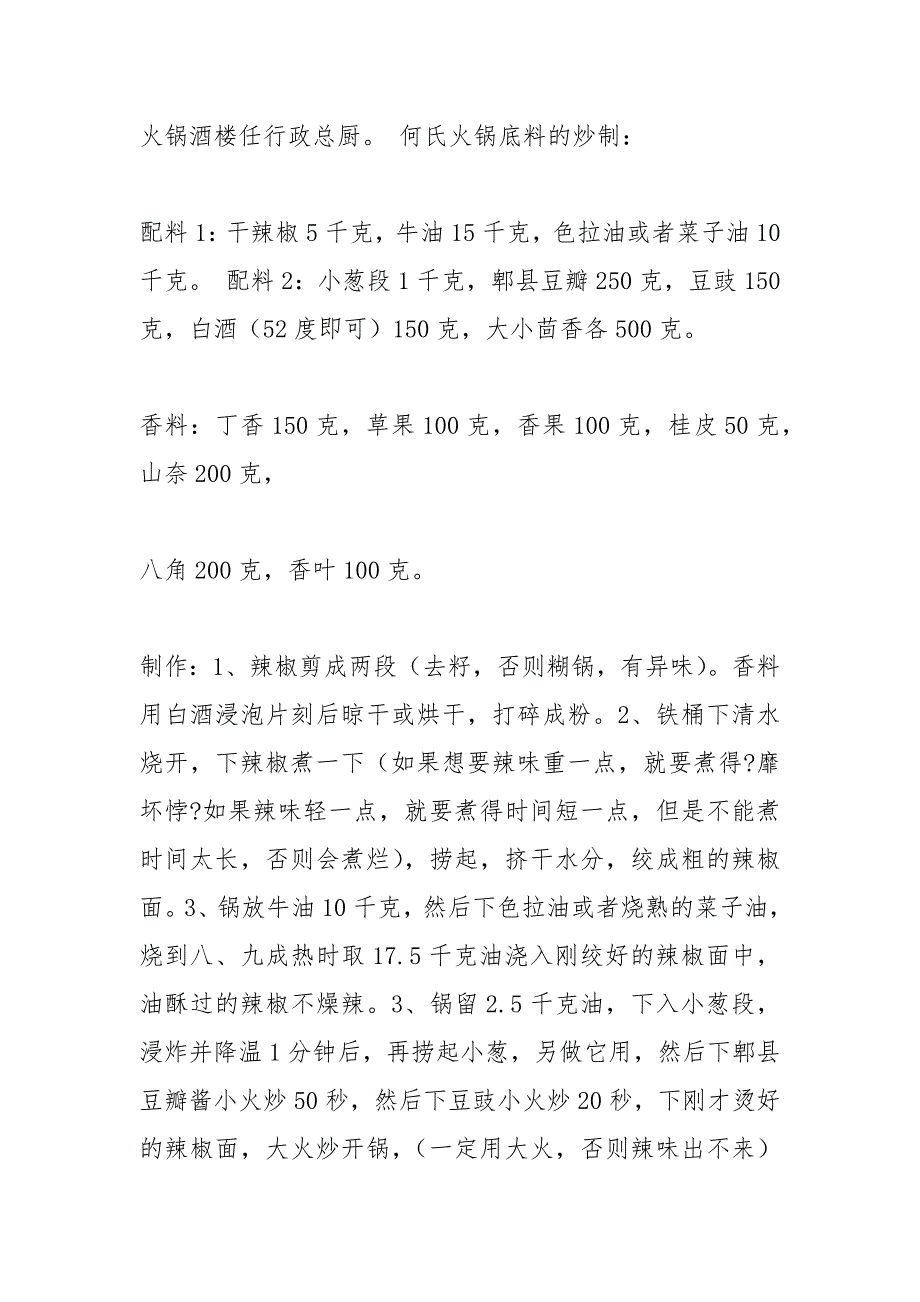 火锅酒楼任行政总厨。 何氏火锅底料的炒制：
配料1：干辣椒5千克，牛油15千克，色拉油或者菜子油10
千克。 配料2：小葱段1千克，郫县豆瓣250克，豆豉150
克，白酒（52度即可）150克，大小茴香各500克。
香料：丁香150克，草果100克，香果100克，桂皮50克，
山奈200克，
八角200克，香叶100克。
制作：1、辣椒剪成两段（去籽，否则糊锅，有异味）。香料
用白酒浸泡片刻后晾干或烘干，打碎成粉。2、铁桶下清水
烧开，下辣椒煮一下（如果想要辣味重一点，就要煮得?靡
坏悖?如果辣味轻一点，就要煮得时间短一点，但是不能煮
时间太长，否则会煮烂），捞起，挤干水分，绞成粗的辣椒
面。3、锅放牛油10千克，然后下色拉油或者烧熟的菜子油，
烧到八、九成热时取17.5千克油浇入刚绞好的辣椒面中，
油酥过的辣椒不燥辣。3、锅留2.5千克油，下入小葱段，
浸炸并降温1分钟后，再捞起小葱，另做它用，然后下郫县
豆瓣酱小火炒50秒，然后下豆豉小火炒20秒，下刚才烫好
的辣椒面，大火炒开锅，（一定用大火，否则辣味出不来）